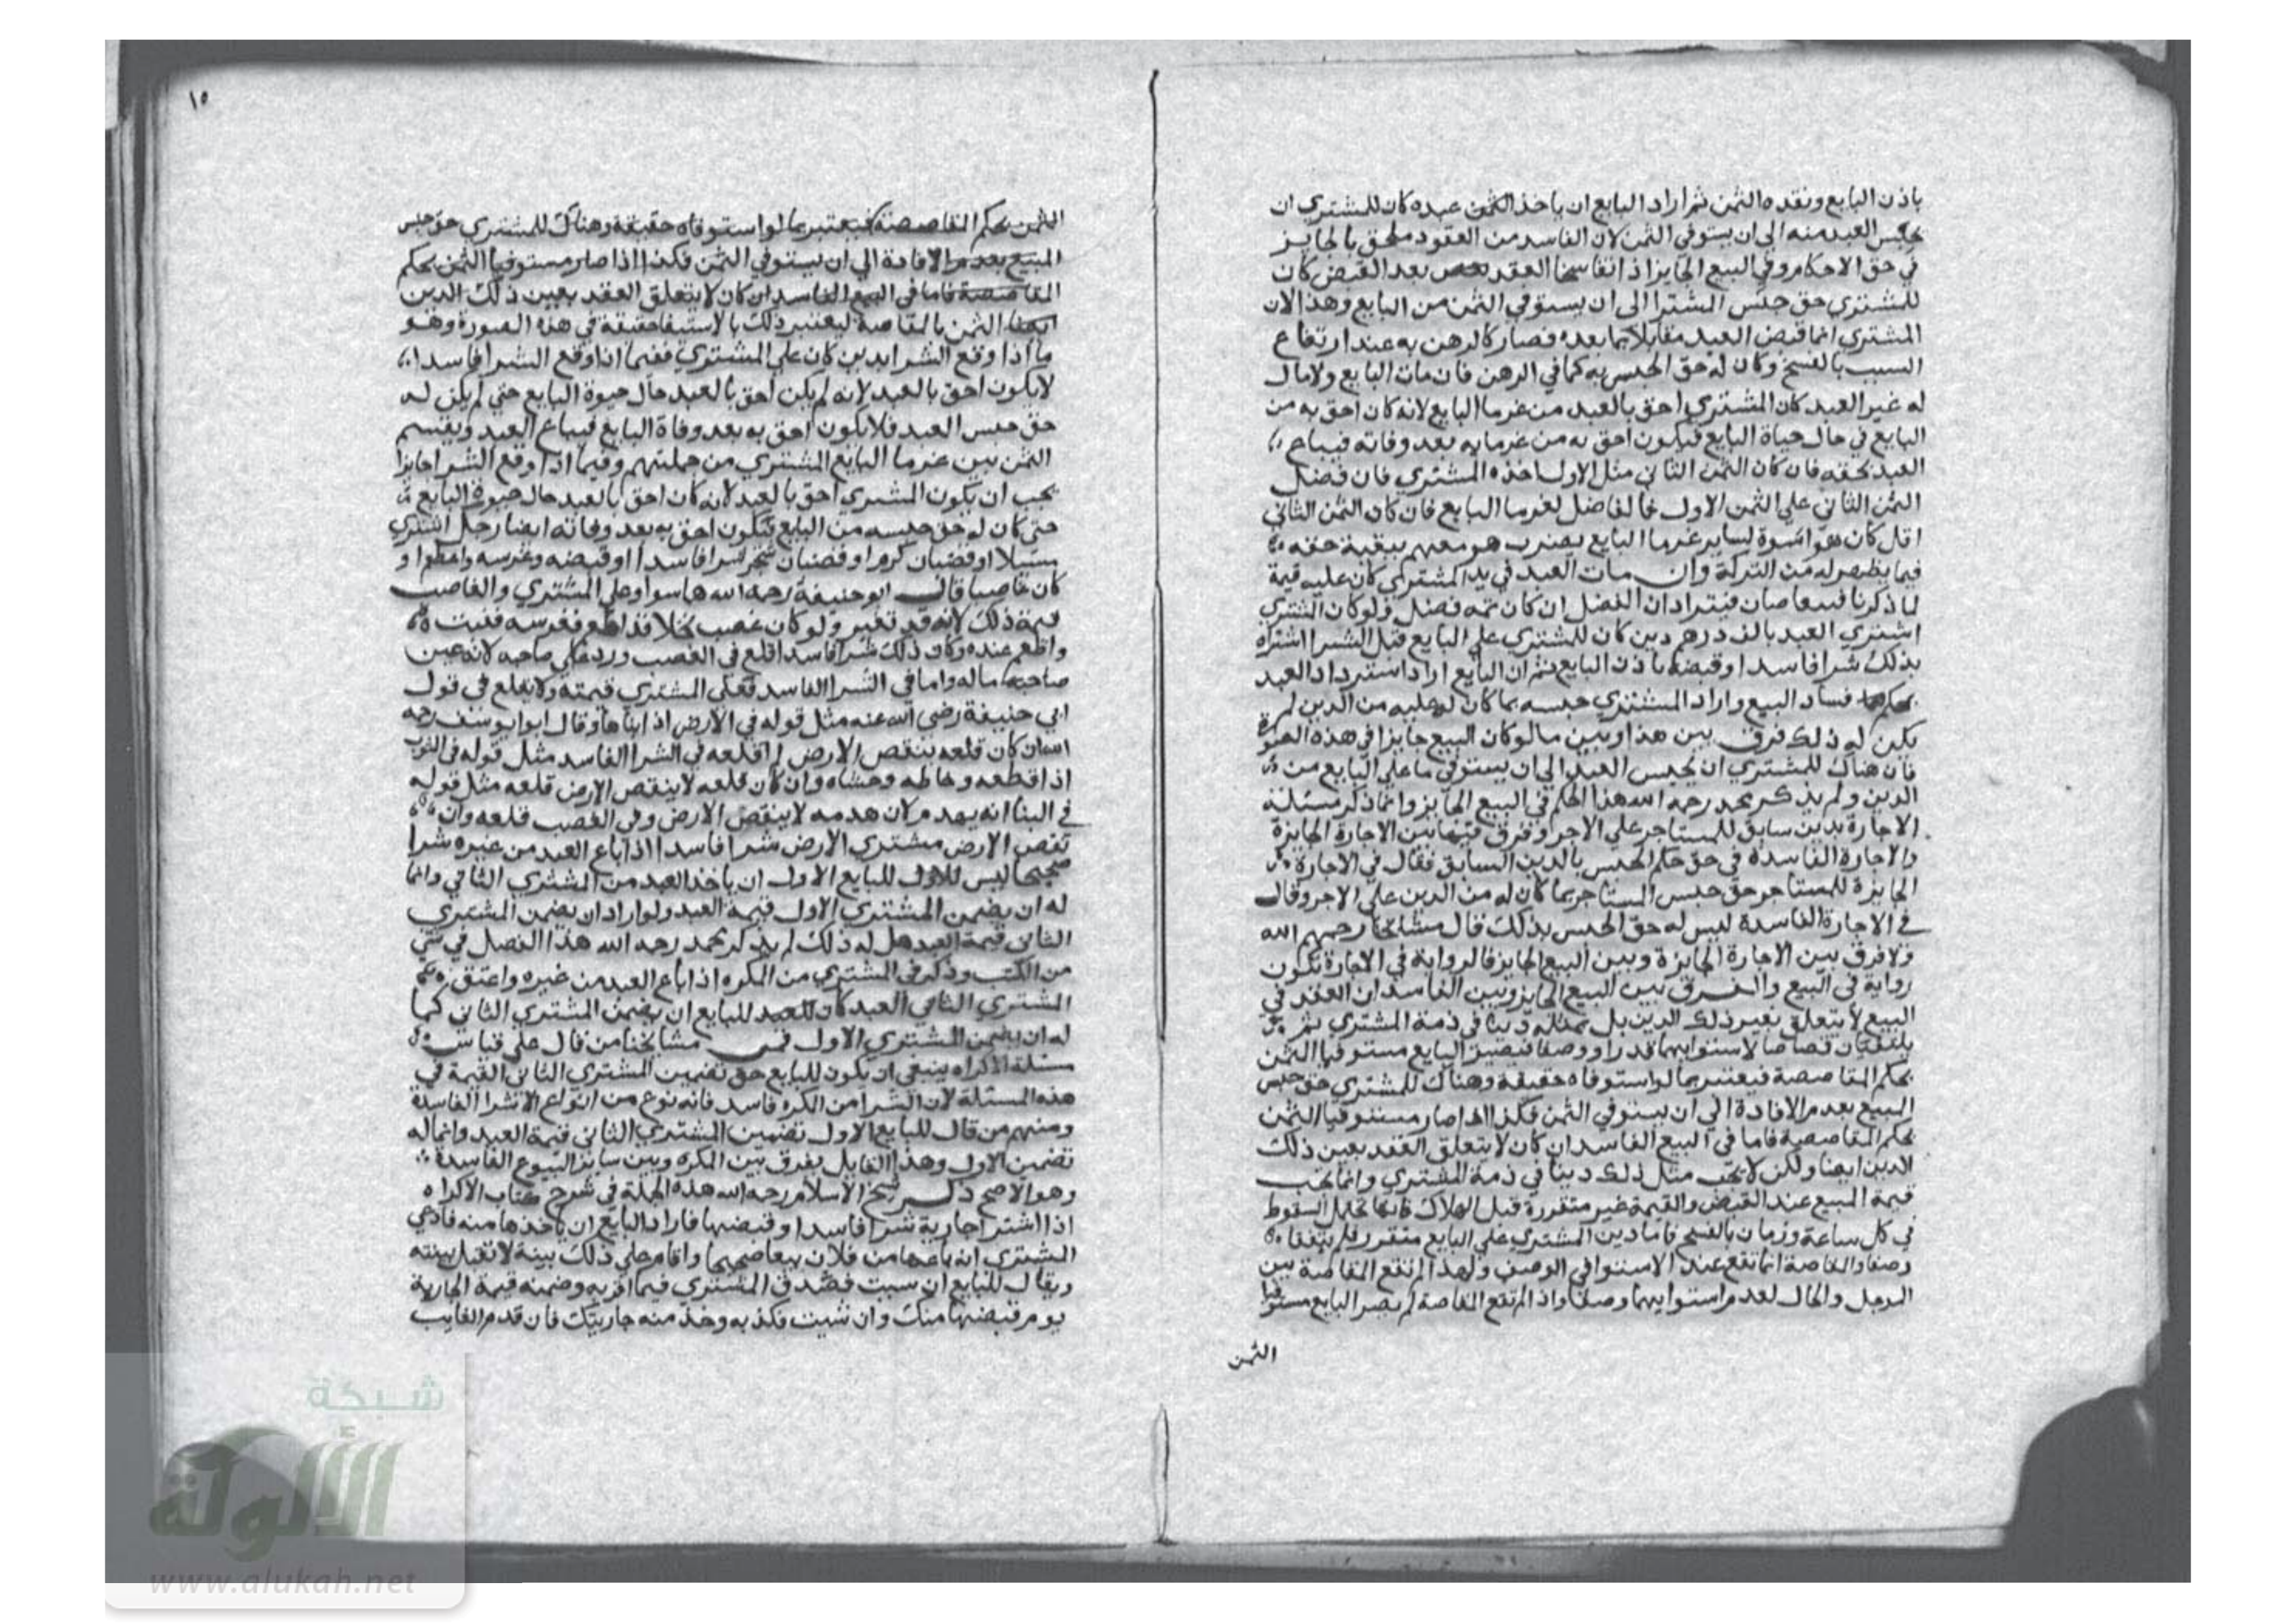 باذن البايع ونقده الثمن ثم اراد البايع ان ياخذ عبده كان للمشتري ان
يحبس العبد منه الى ان يستوفي الثمن لان الفاسد من العقود ملحق بالجايز
في حق الاحكام وفي البيع الجايز اذا تفاسخا العقد بعد القبض كان
للمشتري حق حبس المشترا الى ان يستوفي الثمن من البايع وهذا لان
المشتري انما قبض العبد مقابلا بما بعده فصار كالرهن به عند ارتفاع
السبب بالفسخ وكان له حق الحبس به كما في الرهن فان مات البايع ولا مال
له غير العبد كان المشتري احق بالعبد من غرما البايع لانه كان احق به من
البايع في حال حياة البايع فيكون احق به من غرمايه بعد وفاته فيباع
العبد بحقه فان كان الثمن الثاني مثل الاول اخذه المشتري فان فضل
الثمن الثاني على الثمن الاول فالفاضل لغرما البايع فان كان الثمن الثاني
اقل كان هو اسوة لساير غرما البايع يضرب هو معهم ببقية حقه
فيما يظهر له من التركة وان مات العبد في يد المشتري كان عليه قيمة
لما ذكرنا فيتقاصان فيترادان الفضل ان كان ثمه فضل ولو كان المشتري
اشترى العبد بالف درهم دين كان للمشتري على البايع قبل الشرا اشتراه
بذلك شرا فاسدا وقبضه باذن البايع ثم ان البايع اراد استرداد العبد
بحكم فساد البيع واراد المشتري حبسه بما كان له عليه من الدين لم
يكن له ذلك فرق بين هذا وبين ما لو كان البيع جايزا في هذه الصورة
فان هناك للمشتري ان يحبس العبد الى ان يستوفي ما على البايع من
الدين ولم يذكر محمد رحمه الله هذا الحكم في البيع الجايز وانما ذكر مسئلة
الاجارة بدين سابق للمستاجر على الاجر وفرق فيها بين الاجارة الجايزة
والاجارة الفاسدة في حق حكم الحبس بالدين السابق فقال في الاجارة
الجايزة للمستاجر حق حبس المستاجر بما كان له من الدين على الاجر وقال
في الاجارة الفاسدة ليس له حق الحبس بذلك قال مشايخنا رحمهم الله
ولا فرق بين الاجارة الجايزة وبين البيع الجايز فالرواية في الاجارة تكون
رواية في البيع والفرق بين البيع الجايز وبين الفاسد ان العقد في
البيع لا يتعلق بعين ذلك الدين بل بمثله دينا في ذمة المشتري ثم
يلتقيان قصاصا لاستوايهما قدرا ووصفا فيصير البايع مستوفيا الثمن
بحكم المقاصصة فيعتبر بما لو استوفاه حقيقة وهناك للمشتري حق حبس
المبيع بعدم الافادة الى ان يستوفي الثمن فكذا اذا صار مستوفيا الثمن
بحكم المقاصصة فاما في البيع الفاسد ان كان لا يتعلق العقد بعين ذلك
الدين ايضا ولكن لا يجب مثل ذلك دينا في ذمة المشتري وانما يجب
قيمة المبيع عند القبض والقيمة غير متقررة قبل الهلاك فانها تحتمل السقوط
في كل ساعة وزمان بالفسخ فاما دين المشتري على البايع متقرر فلم يتفقا
وصفا والمقاصة انما تقع عند الاستوا في الوصف ولهذا لم تقع المقاصة بين
الموجل والحال لعدم استوايهما وصفا واذا لم تقع المقاصة لم يصر البايع مستوفيا
الثمن
١٥
الثمن بحكم المقاصصة فيعتبر بما لو استوفاه حقيقة وهناك للمشتري حق حبس
المبيع بعدم الافادة الى ان يستوفي الثمن فكذا اذا صار مستوفيا الثمن بحكم
المقاصصة فاما في البيع الفاسد ان كان لا يتعلق العقد بعين ذلك الدين
الثمن بالمقاصة ليعتبر ذلك بالاستيفا حقيقة في هذه الصورة وهو
ما اذا وقع الشرا بدين كان على المشتري ففيما اذا وقع الشرا فاسدا
لا يكون احق بالعبد لانه لم يكن احق بالعبد حال حيوة البايع حتى لم يكن له
حق حبس العبد فلا يكون احق به بعد وفاة البايع فيباع العبد ويقسم
الثمن بين غرما البايع المشتري من جملتهم وفيما اذا وقع الشرا جايزا
يجب ان يكون المشتري احق بالعبد لانه كان احق بالعبد حال حيوة البايع
حتى كان له حق حبسه من البايع فيكون احق به بعد وفاته ايضا رجل اشترى
او قضبان كرم او قضبان شجر شرا فاسدا وقبضه وغرسه واطعم او
كان غاصبا قال ابو حنيفة رحمه الله هما سوا وعلى المشتري والغاصب
قيمة ذلك لانه قد تغير ولو كان غصب نخلا قد اطعم فغرسه فنبت
واطعم عنده وكان ذلك شرا فاسدا قلع في الغصب ورد على صاحبه لانه عين
صاحبه ماله واما في الشرا الفاسد فعلى المشتري قيمته ولا يقلع في قول
ابي حنيفة رضي الله عنه مثل قوله في الارض اذا بناها وقال ابو يوسف رحمه
الله ان كان قلعه ينقص الارض لم اقلعه في الشرا الفاسد مثل قوله في الثوب
اذا قطعه وخاطه وحشاه وان كان قلعه لا ينقص الارض قلعه مثل قوله
في البنا انه يهدم لان هدمه لا ينقص الارض وفي الغصب قلعه وان
نقص الارض مشتري الارض شرا فاسدا اذا باع العبد من غيره شرا
صحيحا ليس للاول للبايع الاول ان ياخذ العبد من المشتري الثاني وانما
له ان يضمن المشتري الاول قيمة العبد ولو اراد ان يضمن المشتري
الثاني قيمة العبد هل له ذلك لم يذكر محمد رحمه الله هذا الفصل في شي
من الكتب وذكر في المشتري من المكره اذا باع العبد من غيره واعتق
المشتري الثاني العبد كان للبايع ان يضمن المشتري الثاني كما
له ان يضمن المشتري الاول فمن مشايخنا من قال على قياس
مسئلة الاكراه ينبغي ان يكون للبايع حق تضمين المشتري الثاني القيمة في
هذه المسئلة لان الشرا من المكره فاسد فانه نوع من انواع الاشرا الفاسدة
ومنهم من قال للبايع الاول تضمين المشتري الثاني قيمة العبد وانما له
تضمين الاول وهذا القايل يفرق بين المكره وبين ساير البيوع الفاسدة
وهو الاصح ذكر شيخ الاسلام رحمه الله هذه الجملة في شرح كتاب الاكراه
اذا اشترا جارية شرا فاسدا وقبضها فاراد البايع ان ياخذها منه فادعى
المشتري انه باعها من فلان بيعا صحيحا واقام على ذلك بينة لا تقبل بينته
ويقال للبايع ان شيت فصدق المشتري فيما اقر به وضمنه قيمة الجارية
يوم قبضها منك وان شيت فكذبه وخذ منه جاريتك فان قدم الغايب
شبكة
الألوكة
www.alukah.net